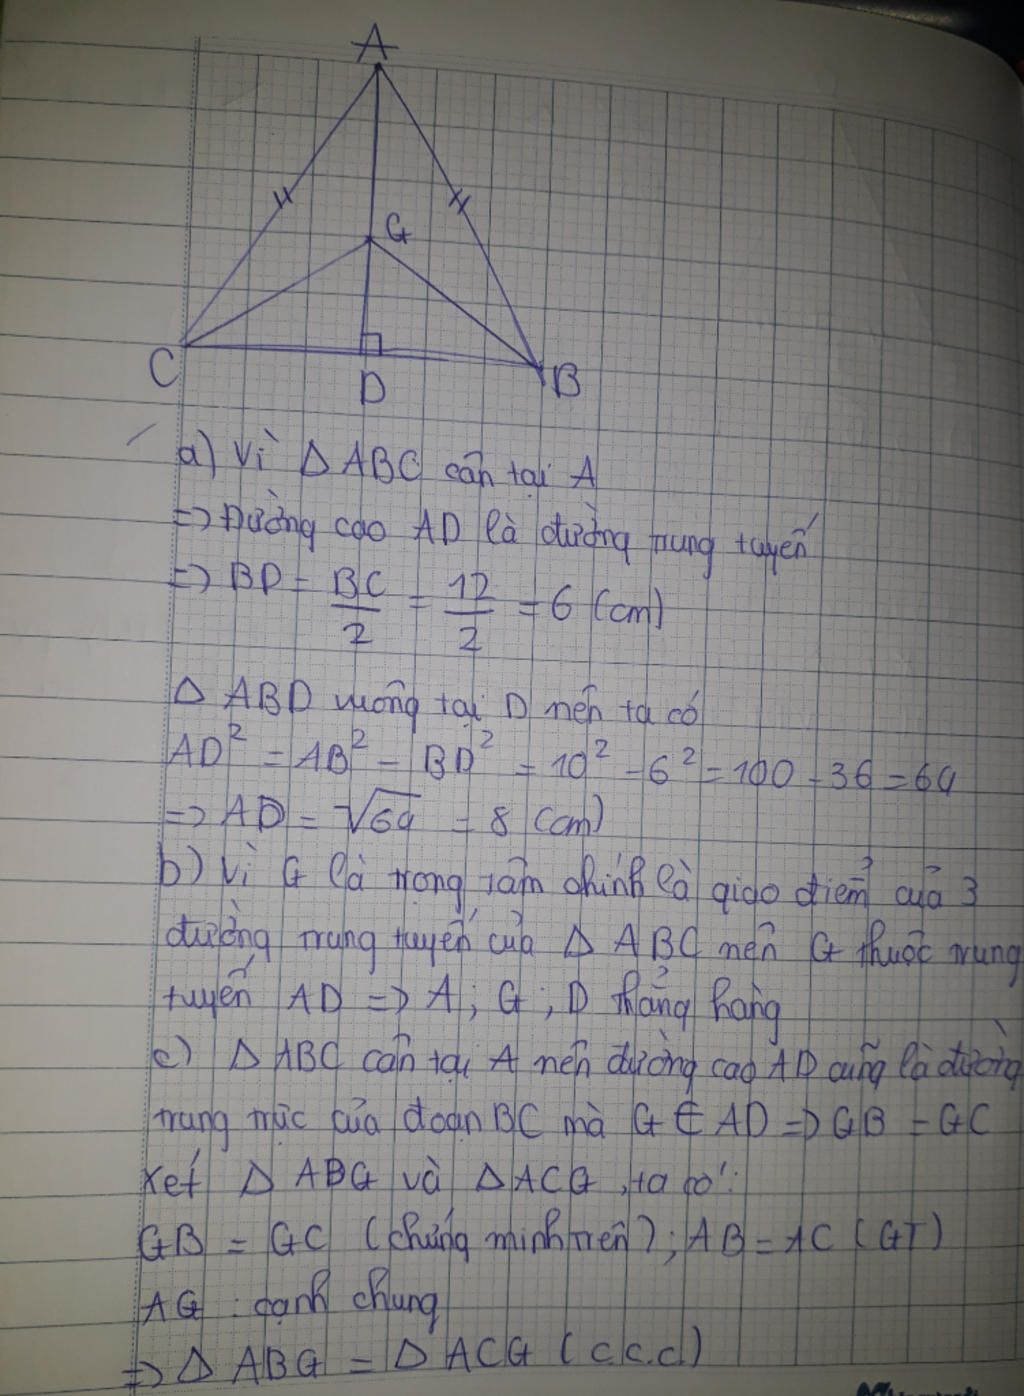 A
G
C
D
B
a) Vì Δ ABC cân tại A
=> Đường cao AD là đường trung tuyến
=> BD = BC/2 = 12/2 = 6 (cm)
Δ ABD vuông tại D nên ta có
AD² = AB² - BD² = 10² - 6² = 100 - 36 = 64
=> AD = √64 = 8 (cm)
b) Vì G là trọng tâm chính là giao điểm của 3
đường trung tuyến của Δ ABC nên G thuộc trung
tuyến AD => A; G; D thẳng hàng
c) Δ ABC cân tại A nên đường cao AD cũng là đường
trung trực của đoạn BC mà G ∈ AD => GB = GC
Xét Δ ABG và Δ ACG, ta có:
GB = GC (chứng minh trên); AB = AC (GT)
AG : cạnh chung
=> Δ ABG = Δ ACG (c.c.c)